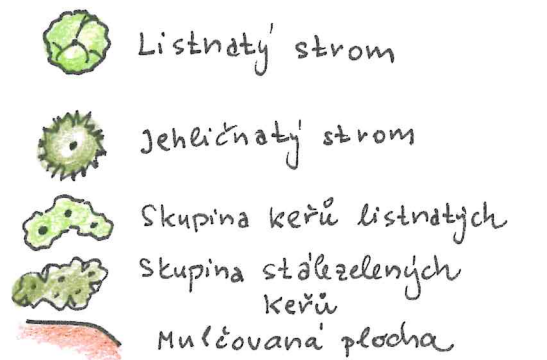 Listnatý strom
Jehličnatý strom
Skupina keřů listnatých
Skupina stálezelených
keřů
Mulčovaná plocha